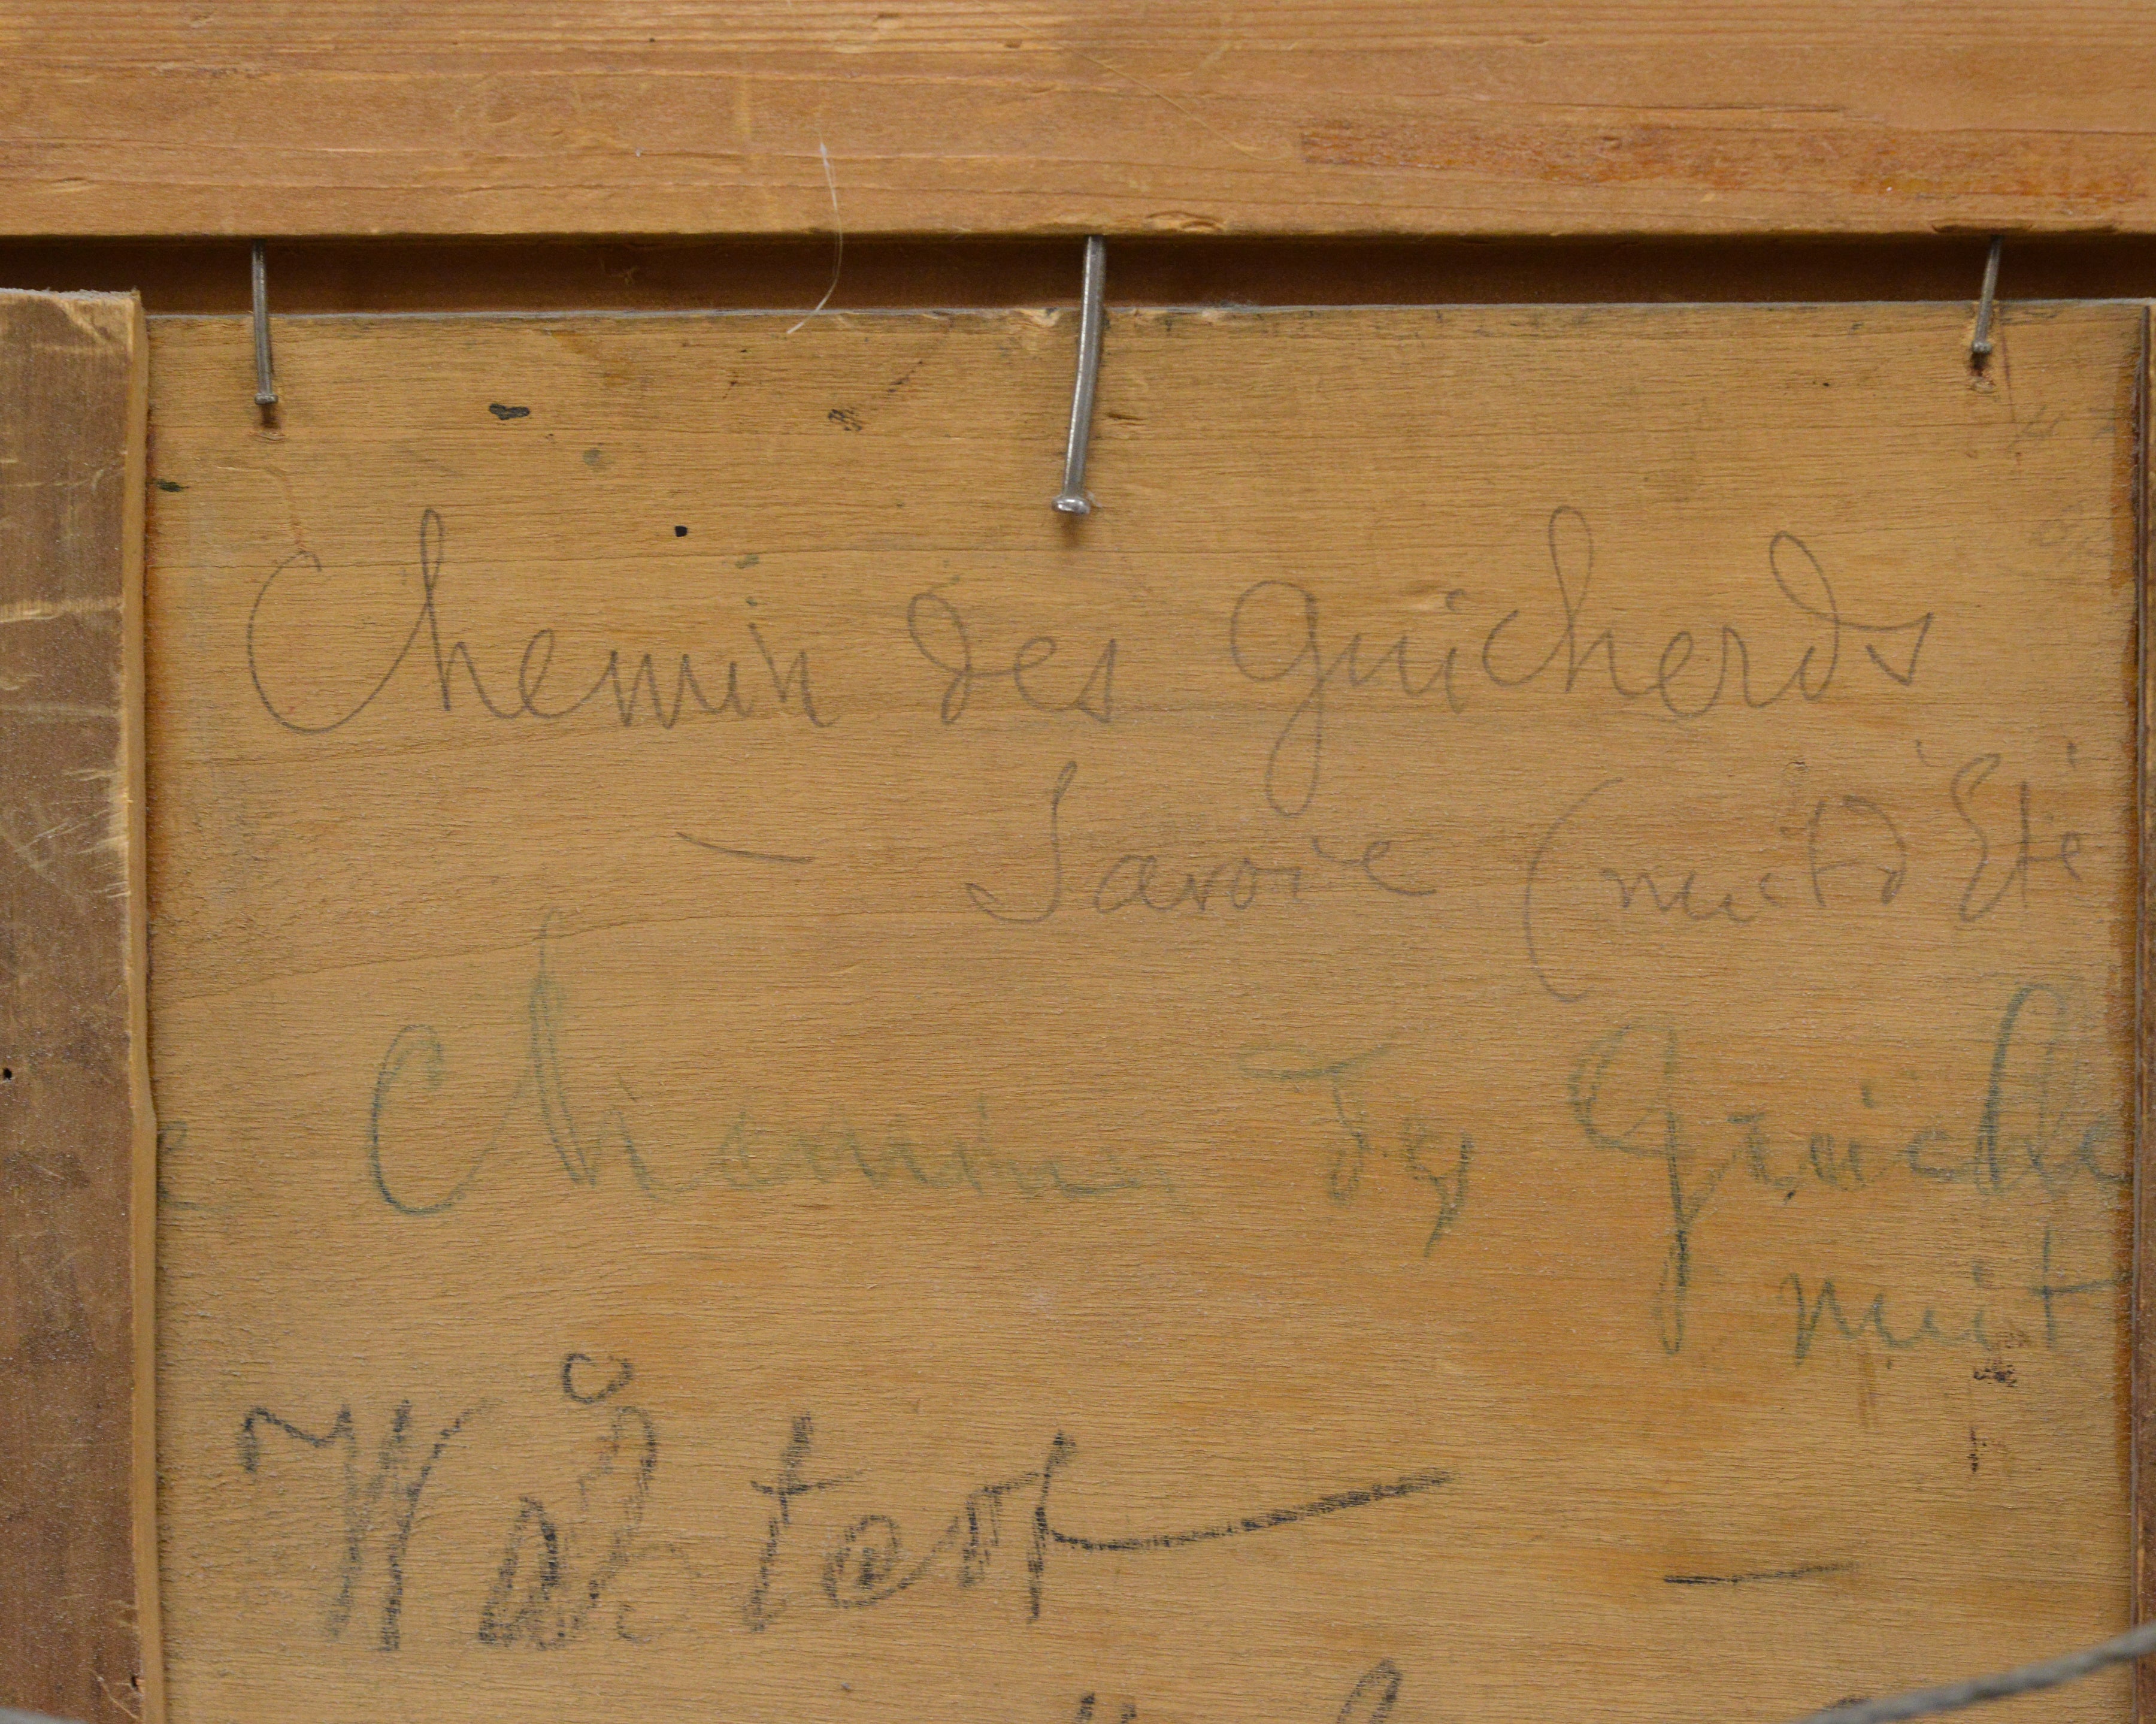 Chemin des Guicherds
— Savoie (nuit d'Eté
Chemin des Guiche
nuit